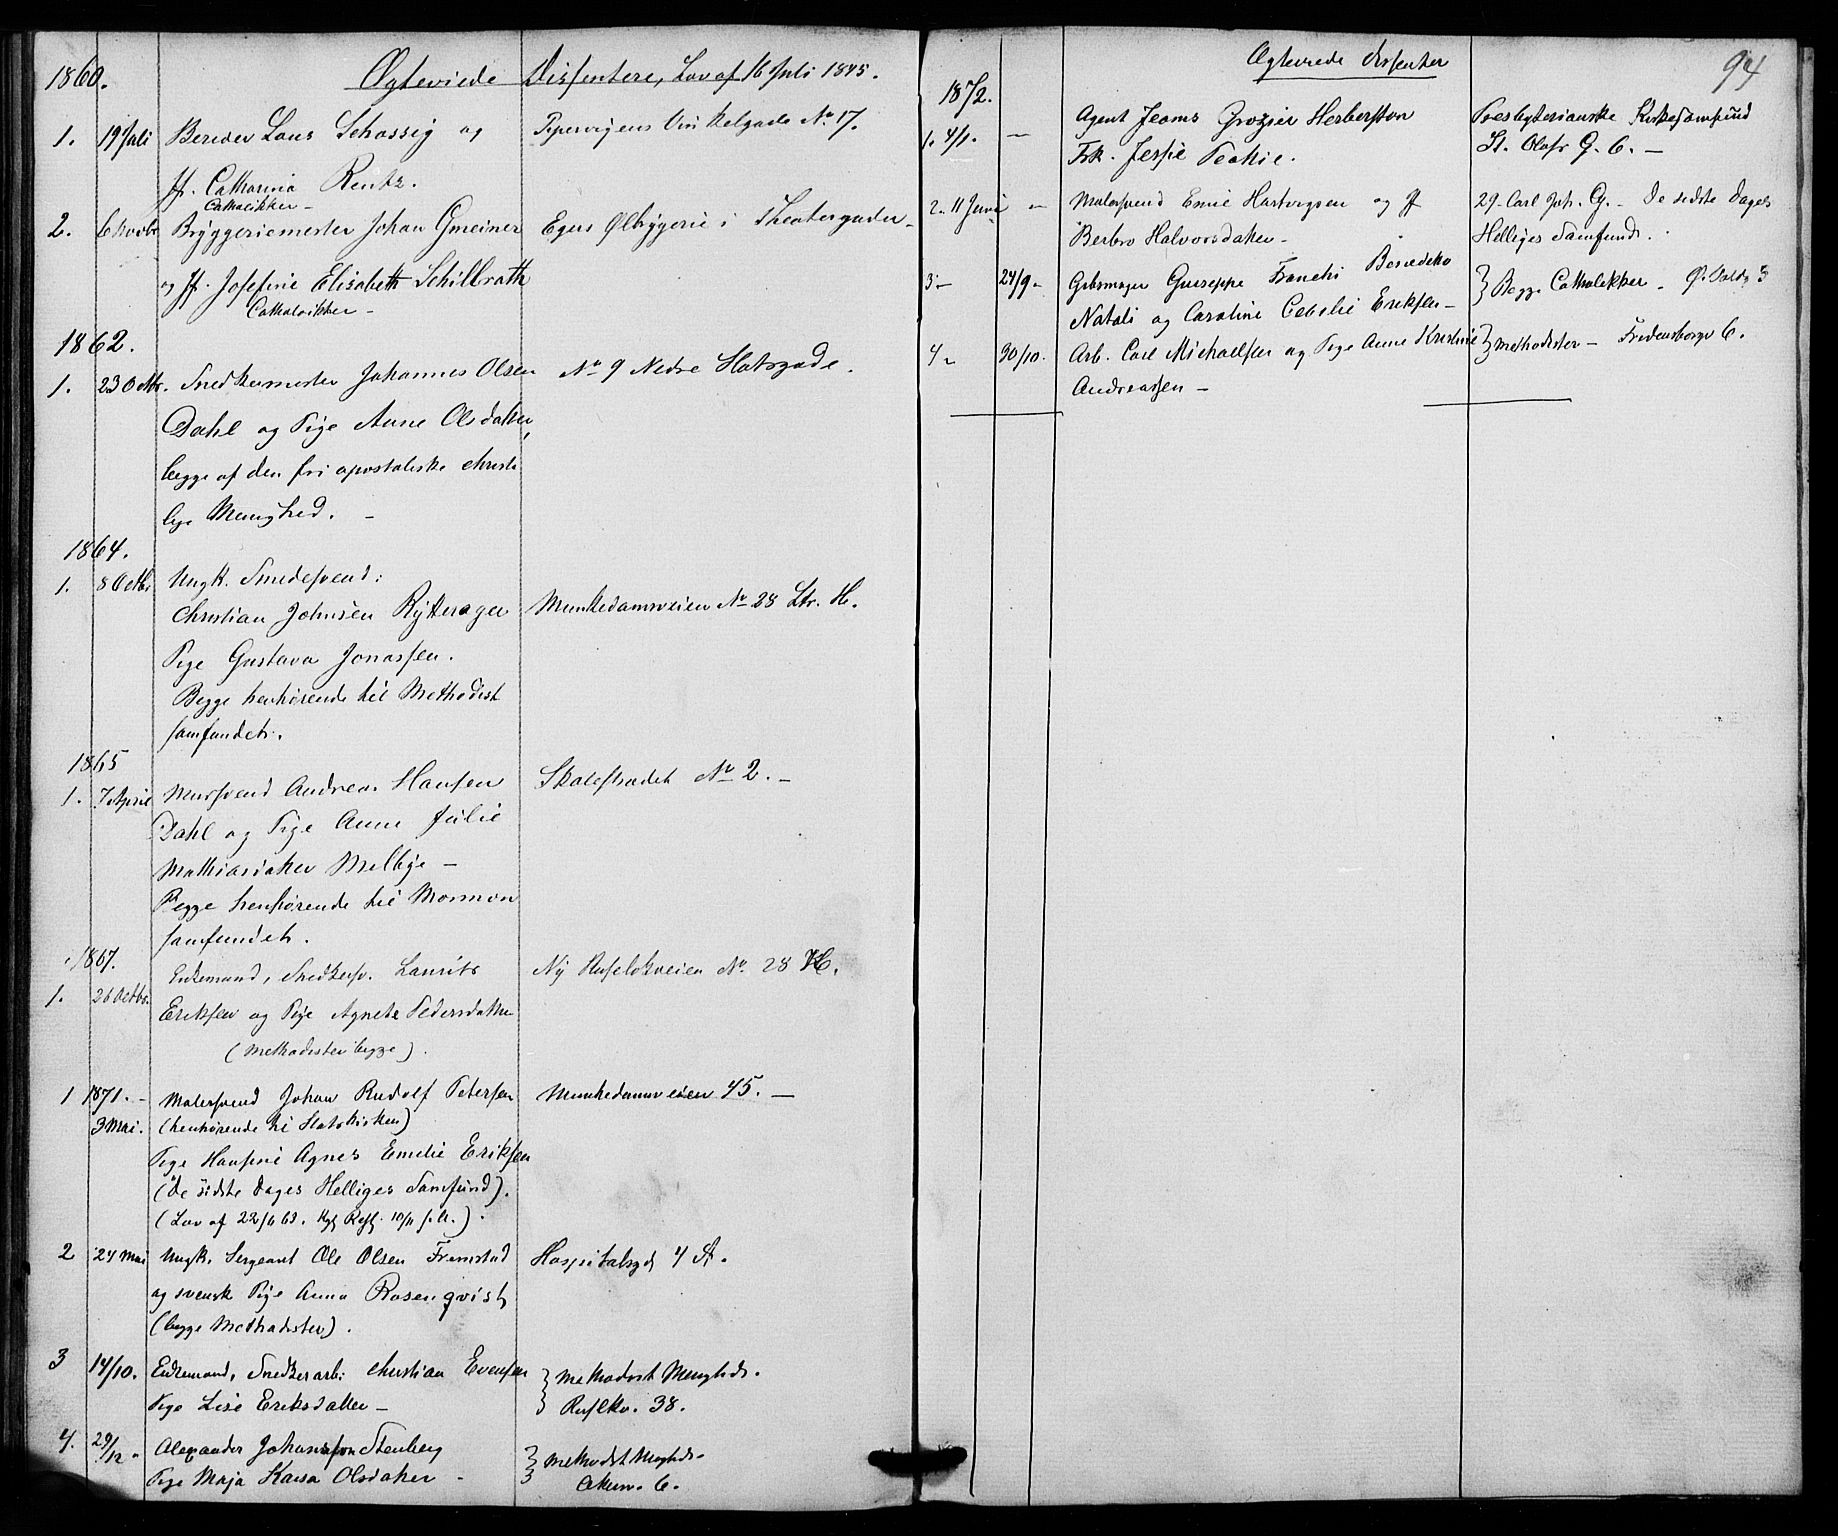 1860.
Ægteviede Dissentere, Lov af 16 Juli 1845.
1. 19 Juli Berider Lans Schossig og Pipervigens Vinkelgade No 17.
Jf. Catharina Rentz.
Catholikker –
2. 6 Novbr Bryggeriemester Johan Gmeiner Egers Ølbryggerie i Theatergaden –
og Jf. Josefine Elisabeth Schilbrath
Catholikker –
1862.
1. 23 Octbr. Snedkermester Johannes Olsen No 9 Nedre Slotsgade.
Dahl og Pige Anne Olsdatter,
begge af den fri apostoliske christe
lige Menighed. –
1864.
1. 8 Octbr Ungk. Smedesvend:
Christian Johnsen Rytterager Munkedamsveien No 28 Ltr. H.
Pige Gustava Jonassen.
Begge henhørende til Methodist
samfundet.
1865
1. 7 April Mursvend Andreas Hansen Skolestrædet No 2. –
Dahl og Pige Anne Julie
Mathiasdatter Melbye –
Begge henhørende til Mormon
samfundet.
1867.
1. 26 Octbr. Enkemand, Snedkersv. Laurits Ny Ruseløkveien No 28 H.
Eriksen og Pige Agnete Pedersdatter
(Methodister begge).
1 1871. – Malersvend Johan Rudolf Petersen Munkedamsveien 45. –
3 Mai. (henhørende til Statskirken)
Pige Hansine Agnes Emelie Eriksen
(de sidste Dages Helliges Samfund).
(Lov af 22/6 63. Kgl. Resl. 10/11 s. A.).
2 24 Mai Ungk. Sergeant Ole Olsen Framstad Hospitalsgd 4 St.
og svensk Pige Anna Rosenqvist
(begge Methodister).
3 14/10. Enkemand, Snedkerarb: Christian Evensen } Methodist Menghd.
Pige Lise Eriksdatter – Ruslkv. 38.
4. 29/12 – Alexander Johannson Stenberg } Methodist Menghd.
Pige Maja Kaisa Olsdatter – Akersv. 6.
Ægteviede Dissenter 94
1872.
1. 4/1. – Agent Jeams Grozier Herbertson Presbyterianske Kirkesamfund
Frk. Jessie Peatie. St. Olafs G. 6. –
2. 11 Juni – Malersvend Emil Hartvigsen og Jf 29. Carl Joh. G. – De sidste Dages
Berbro Halvorsdatter – Helliges Samfund.
3 – 24/9 – Gibsmager Guiseppe Franchi Benedetto } Begge Catholikker –
Natali og Caroline Cecelie Eriksen –
4 – 30/10. Arb. Carl Michaelsen og Pige Anne Kristine } Methodister – Fredensborgv 6.
Andreassen –